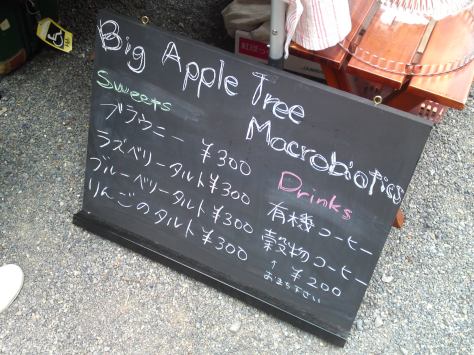 Big Apple Tree
Macrobiotics
Sweets
ブラウニー ¥300
ラズベリータルト ¥300
ブルーベリータルト ¥300
りんごのタルト ¥300
Drinks
有機コーヒー
穀物コーヒー
↑ ¥200
おまち下さい